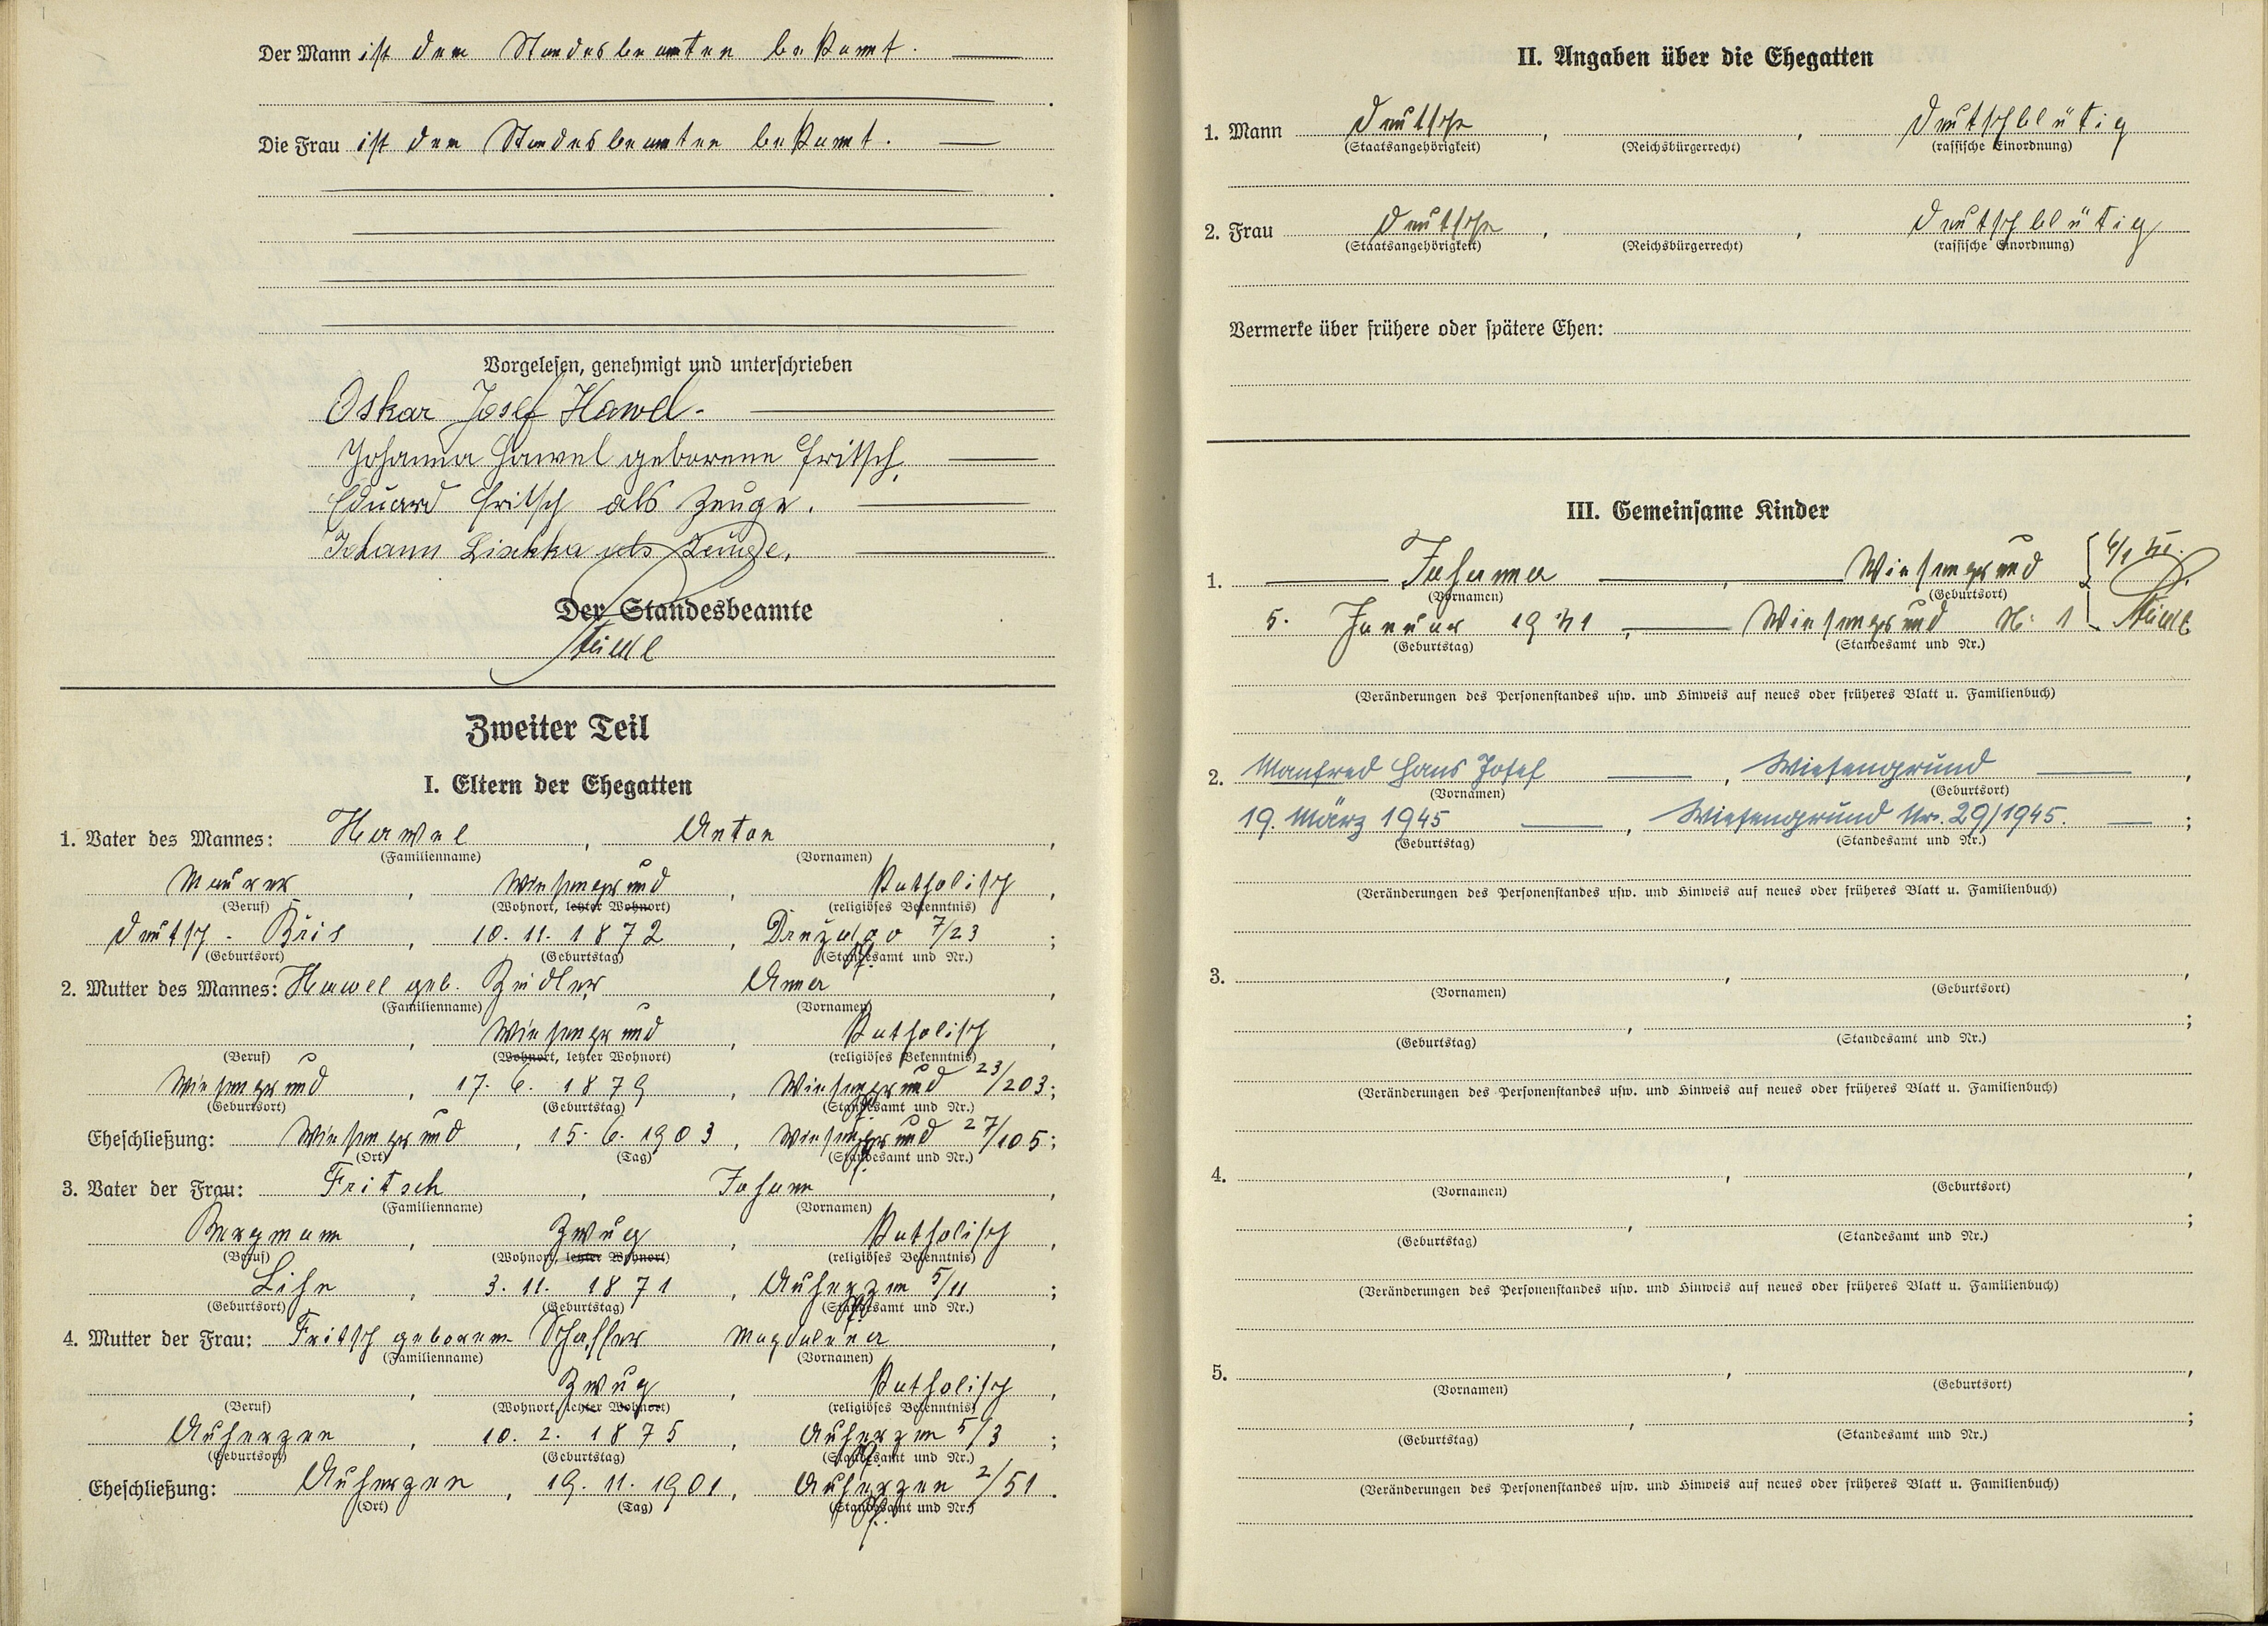 Der Mann ist dem Standesbeamten bekannt.
Die Frau ist dem Standesbeamten bekannt.
Vorgelesen, genehmigt und unterschrieben
Oskar Josef Hawel.
Johanna Hawel geborene Fritsch,
Eduard Fritsch als Zeuge.
Johann Lischka als Zeuge,
Der Standesbeamte
Zweiter Teil
I. Eltern der Ehegatten
1. Vater des Mannes: Hawel, Anton,
(Familienname) (Vornamen)
Maurer, Wiesengrund, Katholisch,
(Beruf) (Wohnort, letzter Wohnort) (religiöses Bekenntnis)
Deutsch-, 10. 11. 1872, 7/23;
(Geburtsort) (Geburtstag) (Standesamt und Nr.)
2. Mutter des Mannes: Hawel geb. Zeidler Anna,
(Familienname) (Vornamen)
, Wiesengrund, Katholisch,
(Beruf) (Wohnort, letzter Wohnort) (religiöses Bekenntnis)
Wiesengrund, 17. 6. 1879, Wiesengrund 23/203;
(Geburtsort) (Geburtstag) (Standesamt und Nr.)
Eheschließung: Wiesengrund, 15. 6. 1903, Wiesengrund 27/105;
(Ort) (Tag) (Standesamt und Nr.)
3. Vater der Frau: Fritsch, Johann,
(Familienname) (Vornamen)
Bergmann, Zwug, Katholisch,
(Beruf) (Wohnort, letzter Wohnort) (religiöses Bekenntnis)
Lihn, 3. 11. 1871, Auherzen 5/11;
(Geburtsort) (Geburtstag) (Standesamt und Nr.)
4. Mutter der Frau: Fritsch geborene Magdalena,
(Familienname) (Vornamen)
, Zwug, Katholisch,
(Beruf) (Wohnort, letzter Wohnort) (religiöses Bekenntnis)
Auherzen, 10. 2. 1875, Auherzen 5/3;
(Geburtsort) (Geburtstag) (Standesamt und Nr.)
Eheschließung: Auherzen, 19. 11. 1901, Auherzen 2/51.
(Ort) (Tag) (Standesamt und Nr.)
II. Angaben über die Ehegatten
1. Mann Deutsche, , Deutschblütig
(Staatsangehörigkeit) (Reichsbürgerrecht) (rassische Einordnung)
2. Frau Deutsche, , Deutschblütig
(Staatsangehörigkeit) (Reichsbürgerrecht) (rassische Einordnung)
Vermerke über frühere oder spätere Ehen:
III. Gemeinsame Kinder
1. Johanna, Wiesengrund
(Vornamen) (Geburtsort)
5. Januar 1941, Wiesengrund Nr. 1
(Geburtstag) (Standesamt und Nr.)
(Veränderungen des Personenstandes usw. und Hinweis auf neues oder früheres Blatt u. Familienbuch)
2. Manfred Hans Josef, Wiesengrund,
(Vornamen) (Geburtsort)
19. März 1945, Wiesengrund Nr. 29/1945.;
(Geburtstag) (Standesamt und Nr.)
(Veränderungen des Personenstandes usw. und Hinweis auf neues oder früheres Blatt u. Familienbuch)
3. , ,
(Vornamen) (Geburtsort)
, ;
(Geburtstag) (Standesamt und Nr.)
(Veränderungen des Personenstandes usw. und Hinweis auf neues oder früheres Blatt u. Familienbuch)
4. , ,
(Vornamen) (Geburtsort)
, ;
(Geburtstag) (Standesamt und Nr.)
(Veränderungen des Personenstandes usw. und Hinweis auf neues oder früheres Blatt u. Familienbuch)
5. , ,
(Vornamen) (Geburtsort)
, ;
(Geburtstag) (Standesamt und Nr.)
(Veränderungen des Personenstandes usw. und Hinweis auf neues oder früheres Blatt u. Familienbuch)